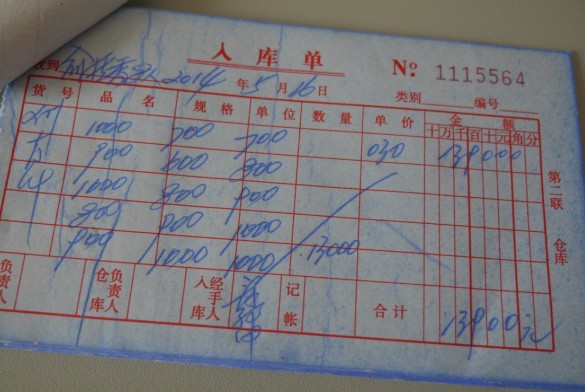 入库单 № 1115564
收到 2014年5月16日 类别 编号
货号 品名 规格 单位 数量 单价 金额
十万千百十元角分
1000 700 700 030 139000
900 600 800
1000 800 900
800 900 1000
900 1000 1000 13000
负责人 仓库负责人 入库经手人 记帐 合计 13900元
第二联 仓库